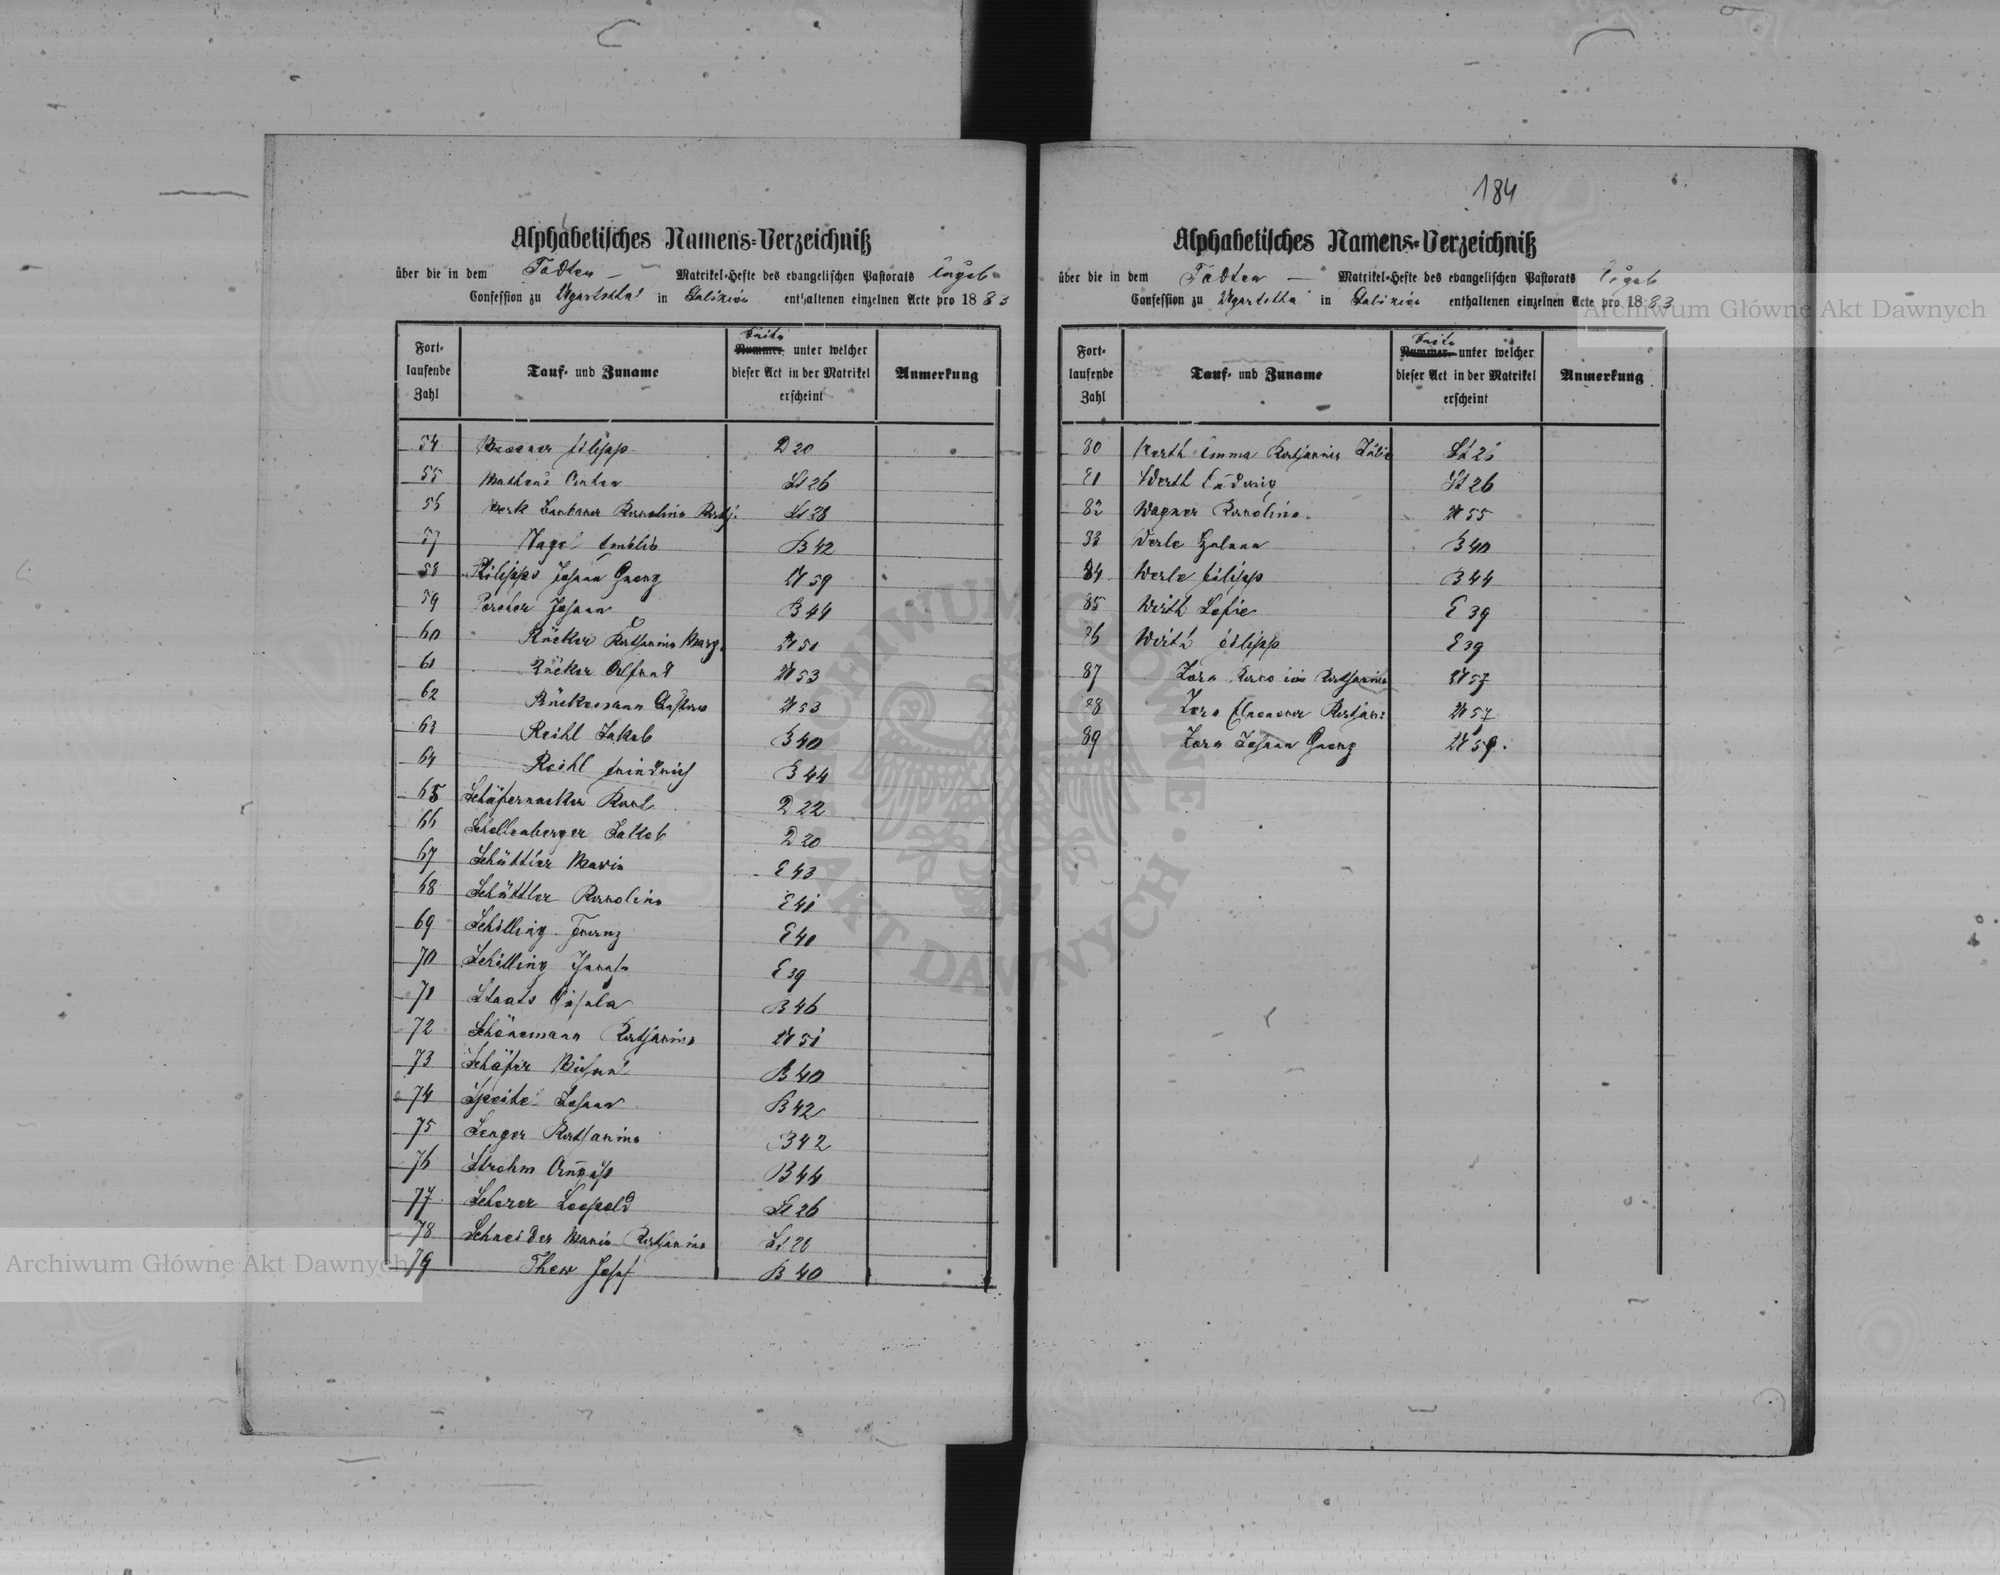 184
Alphabetisches Namens=Verzeichniß
über die in dem Todten — Matrikel=Hefte des evangelischen Pastorats Augsb.
Confession zu Ugartsthal in Galizien enthaltenen einzelnen Acte pro 1883
Fort-laufende Zahl Tauf- und Zuname Seite Nummer unter welcher dieser Act in der Matrikel erscheint Anmerkung
54 Filipp D 20
55 Anton St 26
56 Barbara Karolina Kath. St 28
57 Nagel Emilie B 42
58 Philipps Johann Georg U 59
59 Johann B 44
60 Rücker Katharina Marg. U 51
61 Rücker U 53
62 Rückemann U 53
63 Reihl Jakob B 40
64 Reihl Friedrich B 44
65 Schäfernacker Karl D 22
66 Schollenberger Jakob D 20
67 Schüttler Maria E 43
68 Schüttler Karolina E 41
69 Schilling Franz E 41
70 Schilling E 39
71 Staats B 46
72 Schönemann Katharina U 51
73 Schäfer B 40
74 Johann B 42
75 Senger Katharina B 42
76 Strohm August B 44
77 Scherer Leopold St 26
78 Schneider Maria Katharina St 28
79 Josef B 40
Alphabetisches Namens=Verzeichniß
über die in dem Todten — Matrikel=Hefte des evangelischen Pastorats Augsb
Confession zu Ugartsthal in Galizien enthaltenen einzelnen Acte pro 1883
Fort-laufende Zahl Tauf- und Zuname Seite Nummer unter welcher dieser Act in der Matrikel erscheint Anmerkung
80 Werth Emma Katharina Julie St 26
81 Werth Ludwig St 26
82 Wagner Karolina U 55
83 Werle B 40
84 Werle Filipp B 44
85 Wirth Sofie E 39
86 Wirth Filipp E 39
87 Zorn Karolina Katharina U 57
88 Zorn Eleonora Kathar. U 57
89 Zorn Johann Georg U 59.
Archiwum Główne Akt Dawnych
ARCHIWUM GŁÓWNE • AKT DAWNYCH •
Archiwum Główne Akt Dawnych